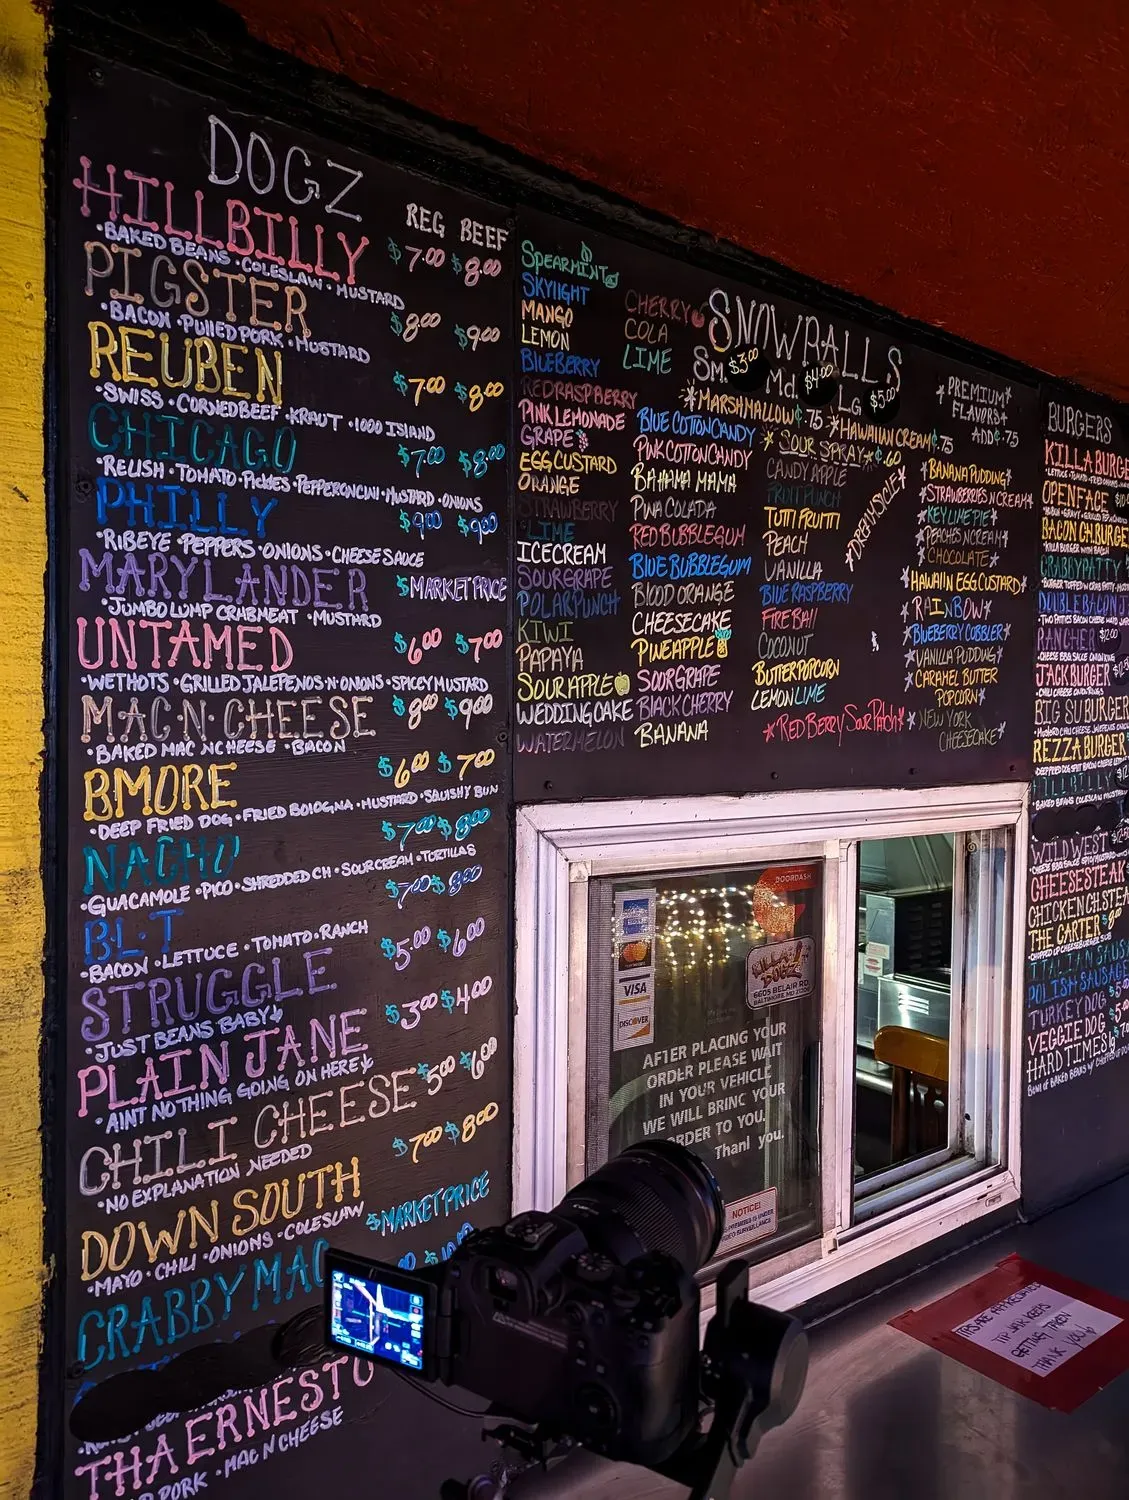 DOGZ
REG BEEF
HILLBILLY $7.00 $8.00
•BAKED BEANS •COLESLAW •MUSTARD
PIGSTER $8.00 $9.00
•BACON •PULLED PORK •MUSTARD
REUBEN $7.00 $8.00
•SWISS •CORNEDBEEF •KRAUT •1000 ISLAND
CHICAGO $7.00 $8.00
•RELISH •TOMATO •PICKLES •PEPPERONCINI •MUSTARD •ONIONS
PHILLY $9.00 $9.00
•RIBEYE PEPPERS •ONIONS •CHEESE SAUCE
MARYLANDER $MARKET PRICE
•JUMBO LUMP CRABMEAT •MUSTARD
UNTAMED $6.00 $7.00
•WETHOTS •GRILLED JALEPENOS •N• ONIONS •SPICEY MUSTARD
MAC•N•CHEESE $8.00 $9.00
•BAKED MAC NCHEESE •BACON
BMORE $6.00 $7.00
•DEEP FRIED DOG •FRIED BOLOGNA •MUSTARD •SQUISHY BUN
NACHO $7.00 $8.00
•GUACAMOLE •PICO •SHREDDED CH •SOUR CREAM •TORTILLAS
B•L•T $7.00 $8.00
•BACON •LETTUCE •TOMATO •RANCH
STRUGGLE $5.00 $6.00
•JUST BEANS BABY
PLAIN JANE $3.00 $4.00
•AINT NOTHING GOING ON HERE
CHILI CHEESE $5.00 $6.00
•NO EXPLANATION NEEDED
DOWN SOUTH $7.00 $8.00
•MAYO •CHILI •ONIONS •COLESLAW
CRABBY MAC $MARKET PRICE
THA ERNESTO
PORK •MAC N CHEESE
SPEARMINT
SKYLIGHT
MANGO
LEMON
BLUEBERRY
RED RASPBERRY
PINK LEMONADE
GRAPE
EGG CUSTARD
ORANGE
STRAWBERRY
LIME
ICE CREAM
SOUR GRAPE
POLAR PUNCH
KIWI
PAPAYA
SOUR APPLE
WEDDING CAKE
WATERMELON
CHERRY
COLA
LIME
BLUE COTTON CANDY
PINK COTTON CANDY
BAHAMA MAMA
PINA COLADA
RED BUBBLEGUM
BLUE BUBBLEGUM
BLOOD ORANGE
CHEESECAKE
PINEAPPLE
SOUR GRAPE
BLACK CHERRY
BANANA
SNOWBALLS
Sm. $3.00 Md. $4.00 LG $5.00
*MARSHMALLOW ¢.75 *HAWAIIAN CREAM ¢.75
*SOUR SPRAY* ¢.60
CANDY APPLE
FRUIT PUNCH
TUTTI FRUITTI
PEACH
VANILLA
BLUE RASPBERRY
FIRE BALL
COCONUT
BUTTER POPCORN
LEMON LIME
*RED BERRY SOUR PATCH*
*DREAMSICLE*
*PREMIUM*
FLAVORS+
ADD ¢.75
*BANANA PUDDING*
*STRAWBERRIES N CREAM*
*KEY LIME PIE*
*PEACHES N CREAM*
*CHOCOLATE*
*HAWAIIN EGG CUSTARD*
*RAINBOW*
*BLUEBERRY COBBLER*
*VANILLA PUDDING*
*CARAMEL BUTTER
POPCORN*
*NEW YORK
CHEESECAKE*
BURGERS
KILLA BURGE
OPEN FACE
BACON CH.BURGE
KILLA BURGER WITH BACON
CRABBY PATTY
DOUBLE BACON
RANCHER $12.00
JACK BURGER
BIG SU BURGER
REZZA BURGER
HILLBILLY
•BAKED BEANS COLESLAW
WILD WEST
CHEESESTEAK
CHICKEN CH. STEA
THE CARTER
ITALIAN SAUSA
POLISH SAUSAGE
TURKEY DOG
VEGGIE DOG
HARD TIMES
DOORDASH
VISA
DISCOVER
KILLA DOGZ
6605 BELAIR RD.
BALTIMORE MD
AFTER PLACING YOUR
ORDER PLEASE WAIT
IN YOUR VEHICLE
WE WILL BRING YOUR
ORDER TO YOU.
Thank you.
NOTICE!
PREMISE IS UNDER
VIDEO SURVEILLANCE
TIPS ARE APPRECIATED
TIP JAR KEEPS
GETTING TAKEN
THANK YOU